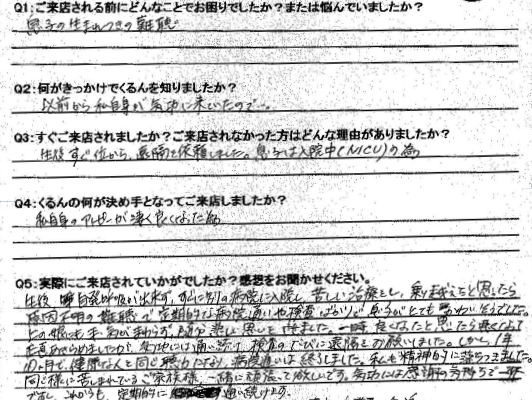 Q1:ご来店される前にどんなことでお困りでしたか？または悩んでいましたか？
息子の生まれつきの難聴
Q2:何がきっかけでくるんを知りましたか？
以前から私自身が気功に来ていたので…。
Q3:すぐご来店されましたか？ご来店されなかった方はどんな理由がありましたか？
生後すぐ位から、遠隔を依頼しました。息子は入院中(NICU)の為
Q4:くるんの何が決め手となってご来店しましたか？
私自身のアトピーが凄く良くなった為
Q5:実際にご来店されていかがでしたか？感想をお聞かせください。
生後、自発呼吸が出来ず、すぐに別の病院に入院し、苦しい治療をし、乗りこえたと思したら
原因不明の難聴で定期的な病院通いや検査ばかりで息子がとても
上の娘にも手が まわらず、 思いを 一時 良くなったと思したら
気功には通い続け、検査のたびに遠隔をお願いしました。しかし、1年
10ヶ月で、健康な人と同じ聴力になり、病院通いは終了しました。私も精神的に
同じ様に苦しまれているご家族様、一緒に頑張って欲しいです。気功には感謝の気持ちで一杯
です。これからも、定期的に 通い続けます。